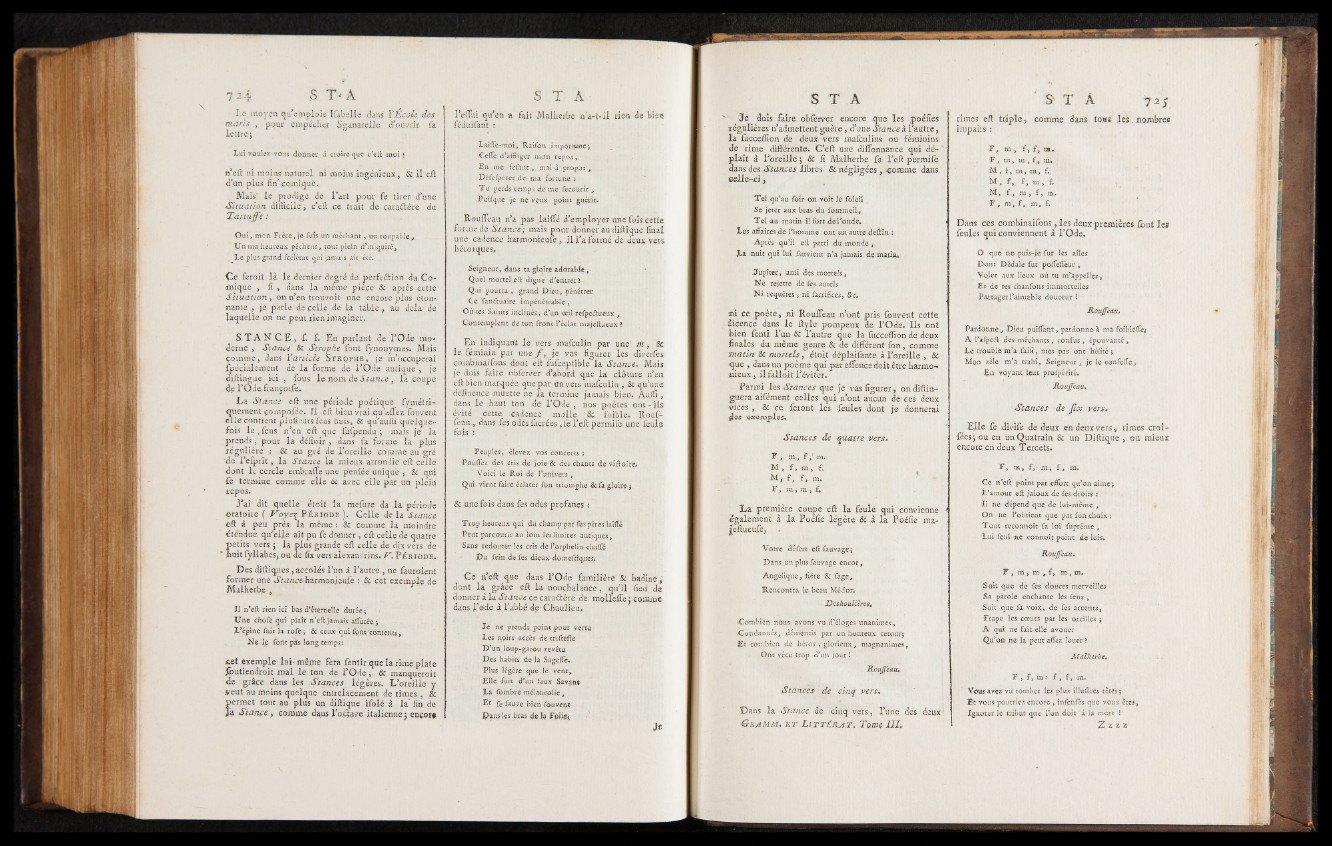 724 S T A
Le moyen qu'emploie Isabelle dans l'École des
maris , pour empêcher Sganarelle d'ouvrir sa
lettre ;
Lui voulez-vous donner à croire que c'est moi ?
n'est ni moins naturel ni moins ingénieux, & il est
d'un plus fin comique.
Mais le prodige de l'art pour se tirer d'une
Situation difficile, c'est ce trait de caractère du
Tartuffe :
Oui, mon Frère, je suis un méchant, un coupable,
Un malheureux pécheur, tout plein d'iniquité,
Le plus grand scélérat qui jamais ait été.
Ce seroit là le dernier degré de perfection du Co-
mique , si , dans la même pièce & après cette
Situation , on n'en trouvoit une encore plus éton-
nante , je parle de celle de la table , au delà de
laquelle on ne peut rien imaginer.
STANCE, s. f. En parlant de l'Ode mo-
derne, Stance & Strophe sont synonymes. Mais
comme, dans l'article STROPHE, je m'occuperai
spécialement de la forme de l'Ode antique, je
distingue ici , sous le nom de Stance , la coupe
de l'Ode françoise.
La Stance est une période poétique symétri-
quement composée. Il est bien vrai qu'assez souvent
elle contient plusieurs sens finis, & qu'aussi quelque-
fois le sens n'en est que suspendu ; mais je la
prends, pour la définir , dans sa forme la plus
régulière : & au gré de l'oreille comme au gré
de l'esprit, la Stance la mieux arrondie est celle
dont le cercle embrasse une pensée unique , & qui
se termine comme elle & avec elle par un plein
repos.
J'ai dit quelle étoit la mesure da la période
oratoire ( Voyez PÉRIODE ). Celle de la Stance
est à peu près la même : & comme la moindre
étendue qu'elle ait pu se donner , est celle de quatre
petits vers ; la plus grande est celle de dix vers de
huit syllabes, ou de six vers alexandrins. V. PÉRIODE.
Des distiques, accolés l'un à l'autre , ne sauroient
former une Stance harmonieuse : & cet exemple de
Malherbe ,
Il n'est rien ici bas d'éternelle durée ;
Une chose qui plaît n'est jamais assurée ;
L'épine suit la rose ; & ceux qui sont contents,
Ne le sont pas long temps :
cet exemple lui-même fera sentir que la rime plate
soutiendroit mal le ton de l'Ode , & manqueroit
de grâce dans les Stances légères. L'oreille y
veut au moins quelque entrelacement de rimes , &
permet tout au plus un distique isolé à la fin de
la Stance , comme dans l'octave italienne ; encore
S T A
l'essai qu'en a fait Malherbe n'a-t-il rien de bien
séduisant :
Laisse-moi, Raison importune ;
Cesse d'affliger mon repos,
En me faisant , mal à propos ,
Désespérer de ma fortune :
Tu perds temps de me secourir ,
Puisque je ne veux point guérir.
Rousseau n'a pas laissé d'employer une fois cette
forme de Stance ; mais pour donner au distique final
une cadence harmonieuse, il l'a formé de deux vers
héroïques.
Seigneur, dans ta gloire adorable,
Quel mortel est digne d'entrer ?
Qui pourra , grand Dieu, pénétrer
Ce sanctuaire impénétrable,
Où tes Saints inclinés, d'un œil respectueux ,
Contemplent de ton front l'éclat majestueux ?
En indiquant le vers masculin par une m , &
le féminin par une f, je vas figurer les diverses
combinaisons dont est susceptible la Stance. Mais
je dois faire observer d'abord que la clôture n'en
est bien marquée que par un vers masculin , & qu'une
désinence muette ne la termine jamais bien. Aussi,
dans le haut ton de l'Ode , nos poètes ont-ils
évité cette cadence molle & foible. Rous-
seau, dans ses odes sacrées, se l'est permise une seule
fois :
Peuples, élevez vos concerts ;
Poussez des cris de joie & des chants de victoire.
Voici le Roi de l'univers,
Qui vient faire éclater son triomphe & sa gloire ;
& une fois dans ses odes profanes :
Trop heureux qui du champ par ses pères laissé
Peut parcourir au loin les limites antiques,
Sans redouter les cris de l'orphelin chassé
Du sein de ses dieux domestiques.
Ce n'est que dans l'Ode familière & badine ,
dont la grâce est la nonchalance , qu'il sied de
donner à la Stance ce caractère de mollesse ; comme
dans l'ode à l'abbé de Chaulieu.
Je ne prends point pour vertu
Les noirs accès de tristesse
D'un loup-garou revêtu
Des habits de la Sagesse.
Plus légère que le vent,
Elle fuit d'un faux Savant
La sombre mélancolie,
Et se sauve bien souvent
Dans les bras de la Folie.
Je
S T A
Je dois faire observer encore que les poésies
régulières n'admettent guère, d'une Stance à l'autre,
la succession de deux vers masculins ou féminins
de rime différente. C'est une dissonnance qui dé-
plaît à l'oreille ; & si Malherbe se l'est permise
dans des Stances libres & négligées , comme dans
celle-ci ,
Tel qu'au soir on voit le soleil
Se jeter aux bras du sommeil,
Tel au matin il sort de l'onde.
Les affaires de l'homme ont un autre destin :
Après qu'il est parti du monde ,
La nuit qui lui survient n'a jamais de matin.
Jupiter, ami des mortels,
Ne rejette de ses autels
Ni requêtes , ni sacrifices, &c.
ni ce poète, ni Rousseau n'ont pris souvent cette
licence dans le style pompeux de l'Ode. Ils ont
bien senti l'un & l'autre que la succession de deux
finales du même genre & de différent son, comme
matin & mortels, étoit déplaisante à l'oreille , &
que , dans un poème qui par essence doit être harmo-
nieux, il falloit l'éviter.
Parmi les Stances que je vas figurer, on distin-
guera aisément celles qui n'ont aucun de ces deux
vices , & ce seront les seules dont je donnerai
des exemples.
Stances de quatre vers.
F , m, f, m.
M , f , m, f.
M, f, f, m.
F, m, m, f.
La première coupe est la seule qui convienne
également à la Poésie légère & à la Poésie ma-
jestueuse,
Votre désert est sauvage ;
Dans un plus sauvage encor,
Angélique, fière & sage,
Rencontra le beau Médor.
Deshoulières.
Combien nous avons vu d'éloges unanimes,
Condannés, démentis par un honteux retour ;
Et combien de héros , glorieux, magnanimes,
Ont vécu trop d'un jour !
Rousseau.
Stances de cinq vers.
Dans la Stance de cinq vers, l'une des deux
GRAMM. ET LITTÉRAT. Tome III.
S T A 725
rimes est triple, comme dans tous les nombres
impairs :
F, m, f, f, m.
F, m, m, f, m.
M, f, m, m, f.
M, f, f, m, f.
M, f, m, f, m.
F, m, f, m, f.
Dans ces combinaisons, les deux premières sont les
seules qui conviennent à l'Ode.
O que ne puis-je sur les ailes
Dont Dédale fut possesseur ,
Voler aux lieux où tu m'appelles,
Et de tes chansons immortelles
Partager l'aimable douceur !
Rousseau.
Pardonne , Dieu puissant, pardonne à ma foiblesse,
A l'aspect des méchants, confus, épouvanté,
Le trouble m'a saisi, mes pas ont hésité ;
Mon zèle m'a trahi, Seigneur, je le confesse,
En voyant leur prospérité.
Rousseau.
Stances de six vers.
Elle se divise de deux en deux vers, rimes croi-
sées ; ou en un Quatrain & un Distique , ou mieux
encore en deux Tercets.
F, m, f, m, f, m.
Ce n'est point par effort qu'on aime ;
L'amour est jaloux de ses droits :
Il ne dépend que de lui-même ,
On ne l'obtient que par son choix :
Tout reconnoît sa loi suprême ,
Lui seul ne connoît point de lois.
Rousseau.
F, m, m, f, m, m.
Soit que de ses douces merveilles
Sa parole enchante les sens ,
Soit que sa voix, de ses accents,
Frape les cœurs par les oreilles ;
A qui ne fait-elle avouer
Qu'on ne la peut assez louer ?
Malherbe.
F, f, m : f, f, m.
Vous avez vu tomber les plus illustres têtes ;
Et vous pourriez encore, insensés que vous êtes,
Ignorer le tribut que l'on doit à la mort ?
Zzzz